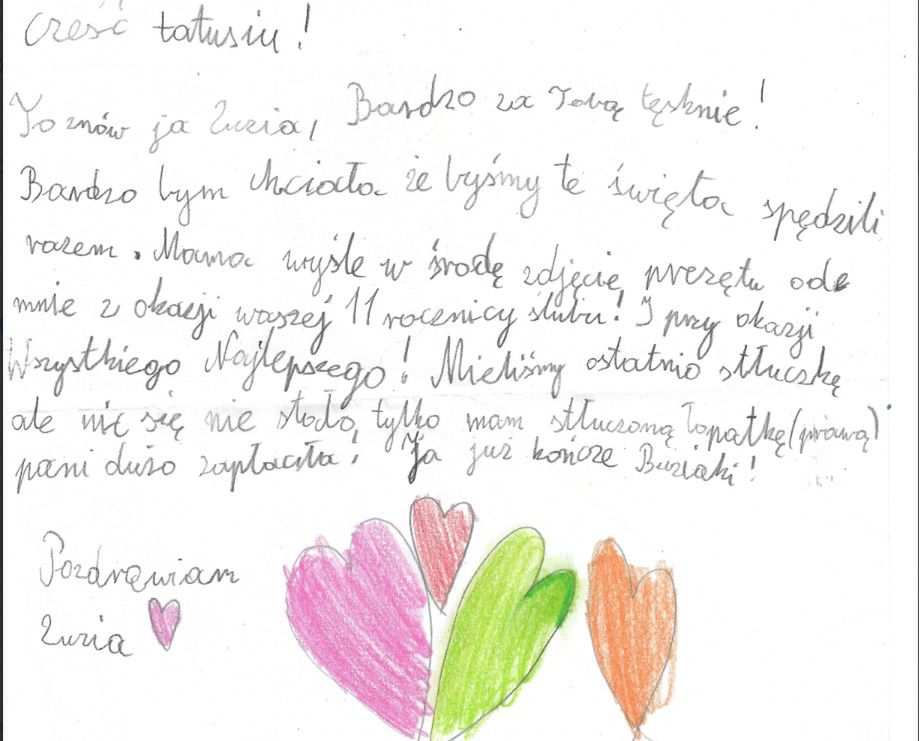 Cześć tatusiu!
To znów ja Zuzia, Bardzo za Tobą tęsknie!
Bardzo bym chciała że byśmy te święta spędzili
razem. Mama wyśle w środę zdjęcie prezętu ode
mnie z okazji waszej 11 rocznicy ślubu! I przy okazji
Wszystkiego Najlepszego! Mieliśmy ostatnio stłuczkę
ale nic się nie stało, tylko mam stłuczoną łopatkę (prawą)
pani dużo zapłaciła! Ja już kończe Buziaki!
Pozdrawiam
Zuzia